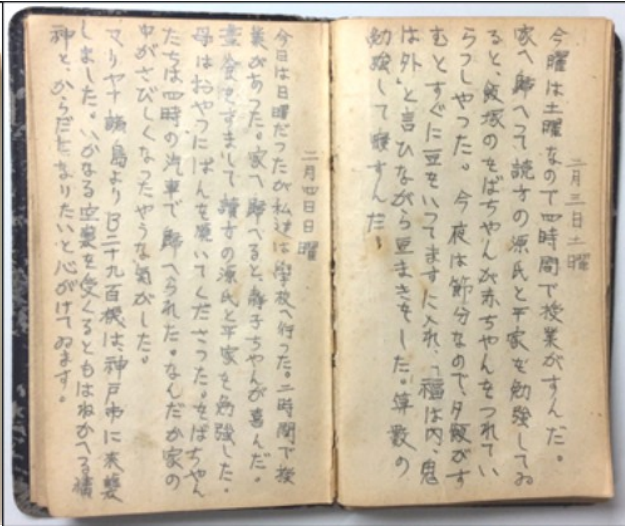 二月三日土曜
今曜は土曜なので四時間で授業がすんだ。
家へ歸へつて読方の源氏と平家を勉強してゐ
ると、飯塚のをばちやんが赤ちやんをつれてい
らつしやつた。今夜は節分なので、夕飯がす
むとすぐに豆をいつてますに入れ、「福は内、鬼
は外」と言ひながら豆まきをした。算数の
勉強して寝すんだ。
二月四日日曜
今日は日曜だつたが私達は學校へ行つた。二時間で授
業があつた。家へ歸へると、静子ちやんが喜んだ。
晝食をすまして讀方の源氏と平家を勉強した。
母はおやつにぱんを焼いてくださつた。をばちやん
たちは四時の汽車で歸へられた。なんだか家の
中がさびしくなつたやうな気がした。
マリヤナ諸島よりB二十九百機は、神戸市に来襲
しました。いかなる空襲を受くるともはねかへる精
神と、からだとなりたいと心がけてゐます。